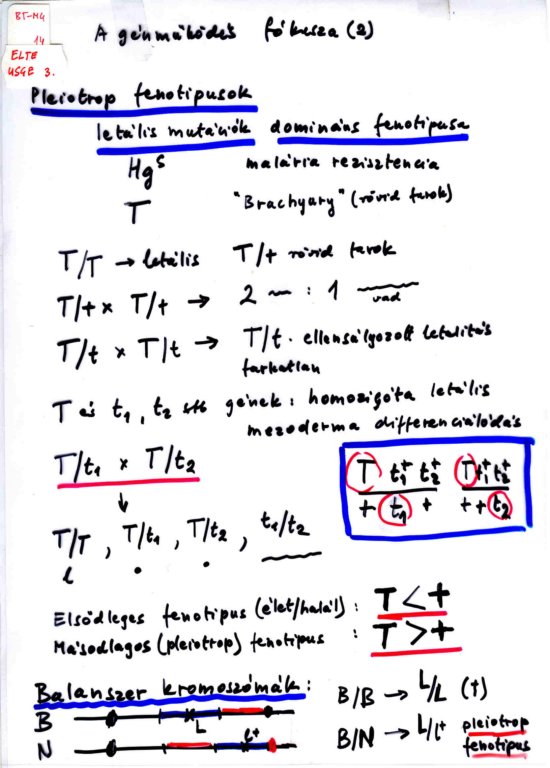 BT-MG
14
ELTE
USGE 3.
A génműködés fókusza (2)
Pleiotrop fenotípusok
letális mutációk domináns fenotípusa
Hg^s malária rezisztencia
T "Brachyury" (rövid farok)
T/T → letális T/+ rövid farok
T/+ × T/+ → 2 ~ : 1 vad
T/t × T/t → T/t · ellensúlyozott letalitás
farkatlan
T és t1, t2 stb gének: homozigóta letális
mezoderma differenciálódás
T/t1 × T/t2
↓
T/T, T/t1, T/t2, t1/t2
l
T t1+ t2+ T t1+ t2+
+ t1 + + + t2
Elsődleges fenotípus (élet/halál): T < +
Másodlagos (pleiotrop) fenotípus : T > +
Balanszer kromoszómák:
B L
N l+
B/B → L/L (†)
B/N → L/l+ pleiotrop
fenotípus